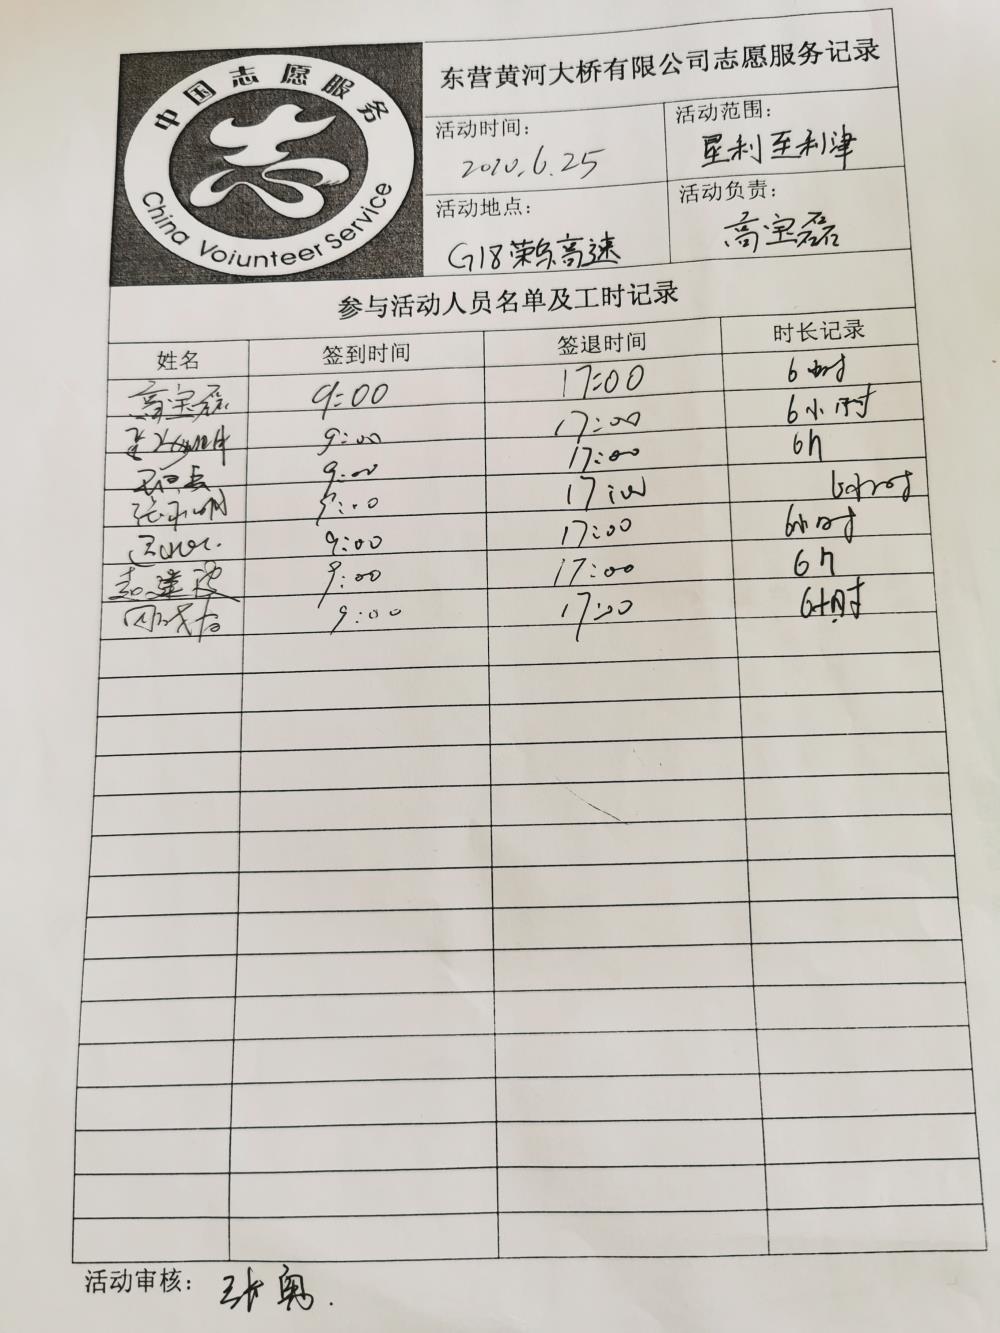 中国志愿服务
China Voiunteer Service
东营黄河大桥有限公司志愿服务记录
活动时间：
2010.6.25
活动范围：
垦利至利津
活动地点：
G18荣乌高速
活动负责：
高宝磊
参与活动人员名单及工时记录
姓名 签到时间 签退时间 时长记录
高宝磊 9:00 17:00 6小时
9:00 17:00 6小时
9:00 17:00 6h
9:00 17:00 6小时
9:00 17:00 6小时
9:00 17:00 6h
9:00 17:00 6小时
活动审核：张奥.